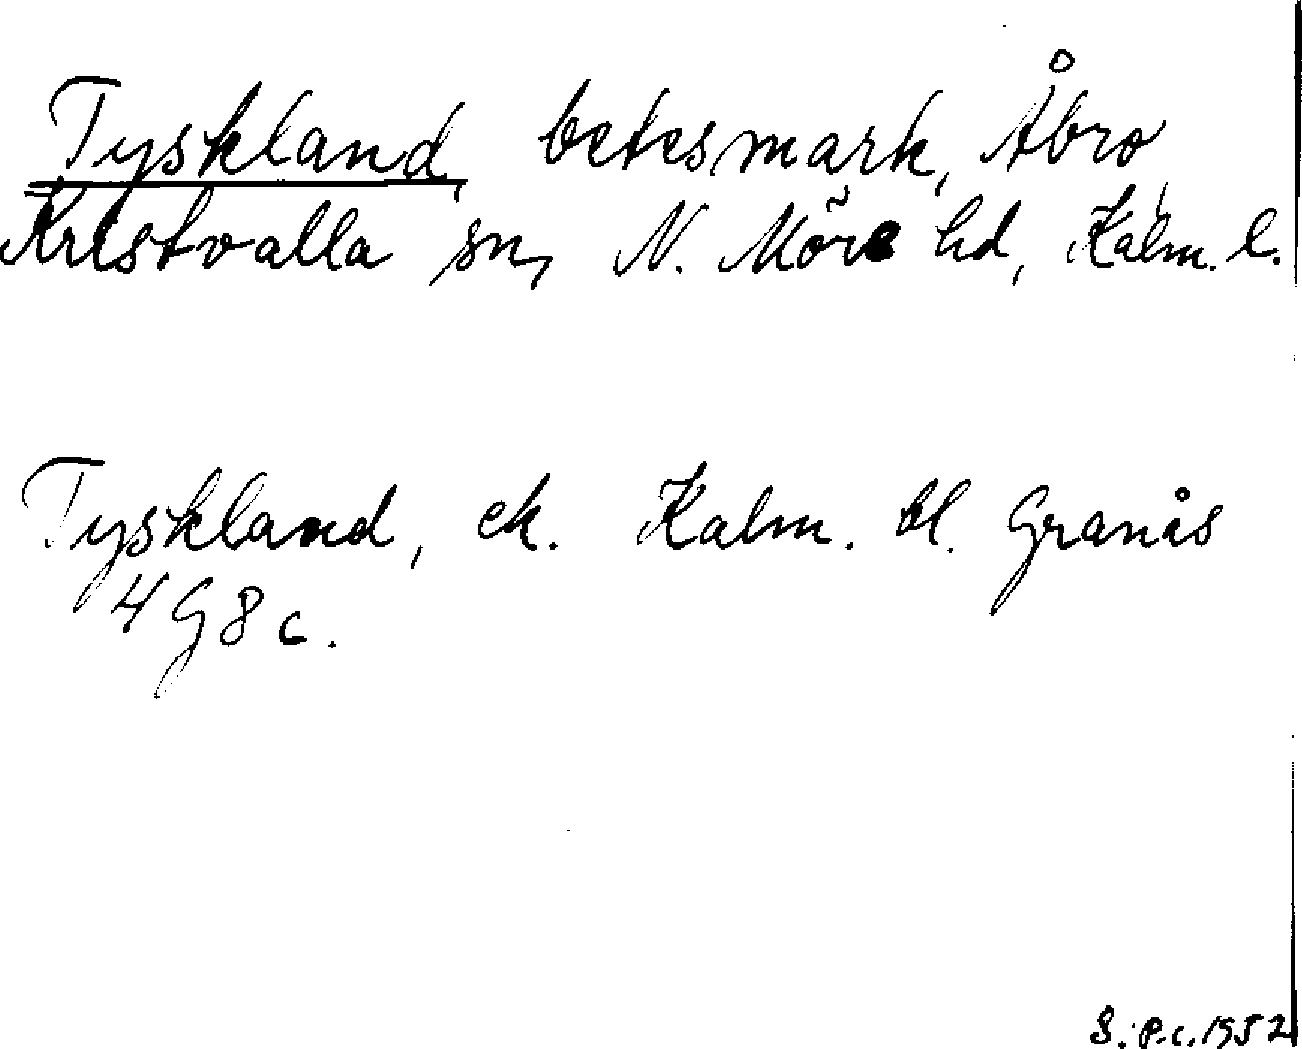 Tyskland, betesmark, Åbro
Kristvalla sn, N. Möre hd, Kalm. l.
Tyskland, ek. Kalm. bl. Granås
4 G 8 c.
S. P.c. 1952